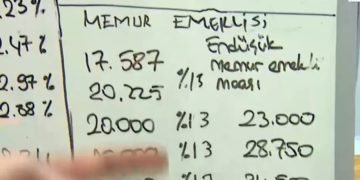 23%
2.47 %
2.97 %
2.38 %
MEMUR EMEKLİSİ
17.587
Endüşük
Memur emekli
maaşı
20.225 %13
20.000 %13 23.000
%13 28.750